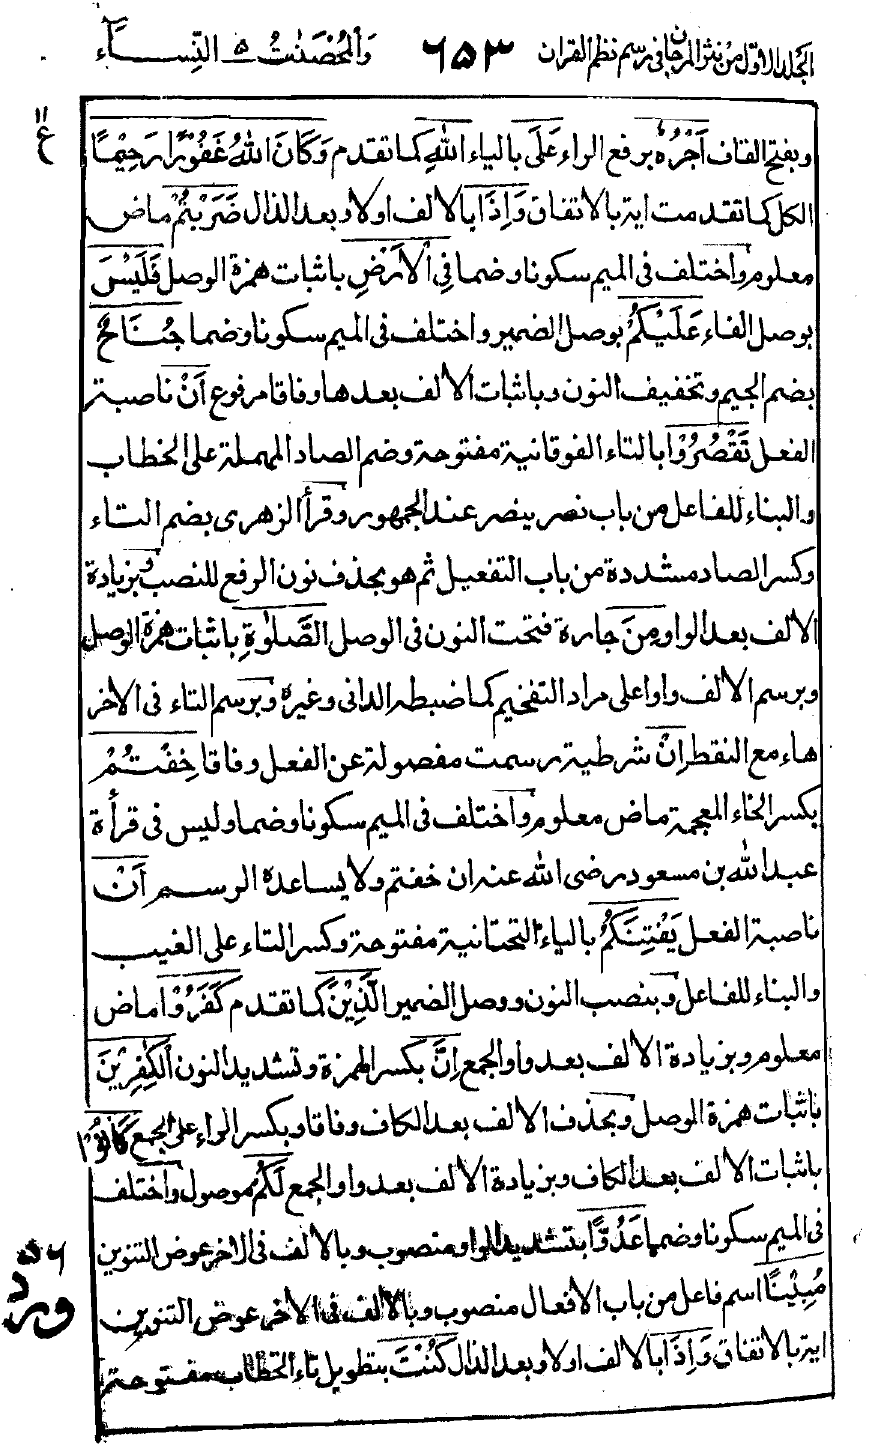 الجلد الاول من نثر المرجان فی رسم نظم القران ٦٥٣ والمحصنٰت ٥ النِّسَــــآء
ع
وبفتح القاف اَجْرُهٗ برفع الراء عَلَى بالياء اللهِ كما تقدم وَكَانَ اللهُ غَفُوْرًا رَحِيْمًا
الكل كما تقدمت اية بالاتفاق وَاِذَا بالالف اولا وبعد الذال ضَرَبْتُمْ ماض
معلوم واختلف فى الميم سكونا وضما فِى الْاَرْضِ باثبات همزة الوصل فَلَيْسَ
بوصل الفاء عَلَيْكُمْ بوصل الضمير واختلف فى الميم سكونا وضما جُنَاحٌ
بضم الجيم وتخفيف النون وباثبات الالف بعدها وفاقا مرفوع اَنْ ناصبة
الفعل تَقْصُرُوْا بالتاء الفوقانية مفتوحة وضم الصاد المهملة على الخطاب
والبناء للفاعل من باب نصر ينصر عند الجمهور وقرأ الزهرى بضم التاء
وكسر الصاد مشددة من باب التفعيل ثم هو بحذف نون الرفع للنصب وبزيادة
الالف بعد الواو مِنَ جارة فتحت النون فى الوصل الصَّلٰوةِ باثبات همزة الوصل
وبرسم الالف واوا على مراد التفخيم كما ضبطه الدانى وغيره وبرسم التاء فى الاخر
هاء مع النقط اِنْ شرطية رسمت مفصولة عن الفعل وفاقا خِفْتُمْ
بكسر الخاء المعجمة ماض معلوم واختلف فى الميم سكونا وضما وليس فى قرأة
عبد الله بن مسعود رضى الله عنه ان خفتم ولا يساعده الرسم اَنْ
ناصبة الفعل يَفْتِنَكُمُ بالياء التحتانية مفتوحة وكسر التاء على الغيب
والبناء للفاعل وبنصب النون ووصل الضمير الَّذِيْنَ كما تقدم كَفَرُوْا ماض
معلوم وبزيادة الالف بعد واو الجمع اِنَّ بكسر الهمزة وتشديد النون الْكٰفِرِيْنَ
باثبات همزة الوصل وبحذف الالف بعد الكاف وفاقا وبكسر الراء على الجمع كَانُوْا
باثبات الالف بعد الكاف وبزيادة الالف بعد واو الجمع لَكُمْ موصول واختلف
فى الميم سكونا وضما عَدُوًّا بتشديد الواو منصوب وبالالف فى الاخر عوض التنوين
مُبِيْنًا اسم فاعل من باب الافعال منصوب وبالالف فى الاخر عوض التنوين
اية بالاتفاق وَاِذَا بالالف اولا وبعد الذال كُنْتَ بتطويل تاء الخطاب مفتوحة